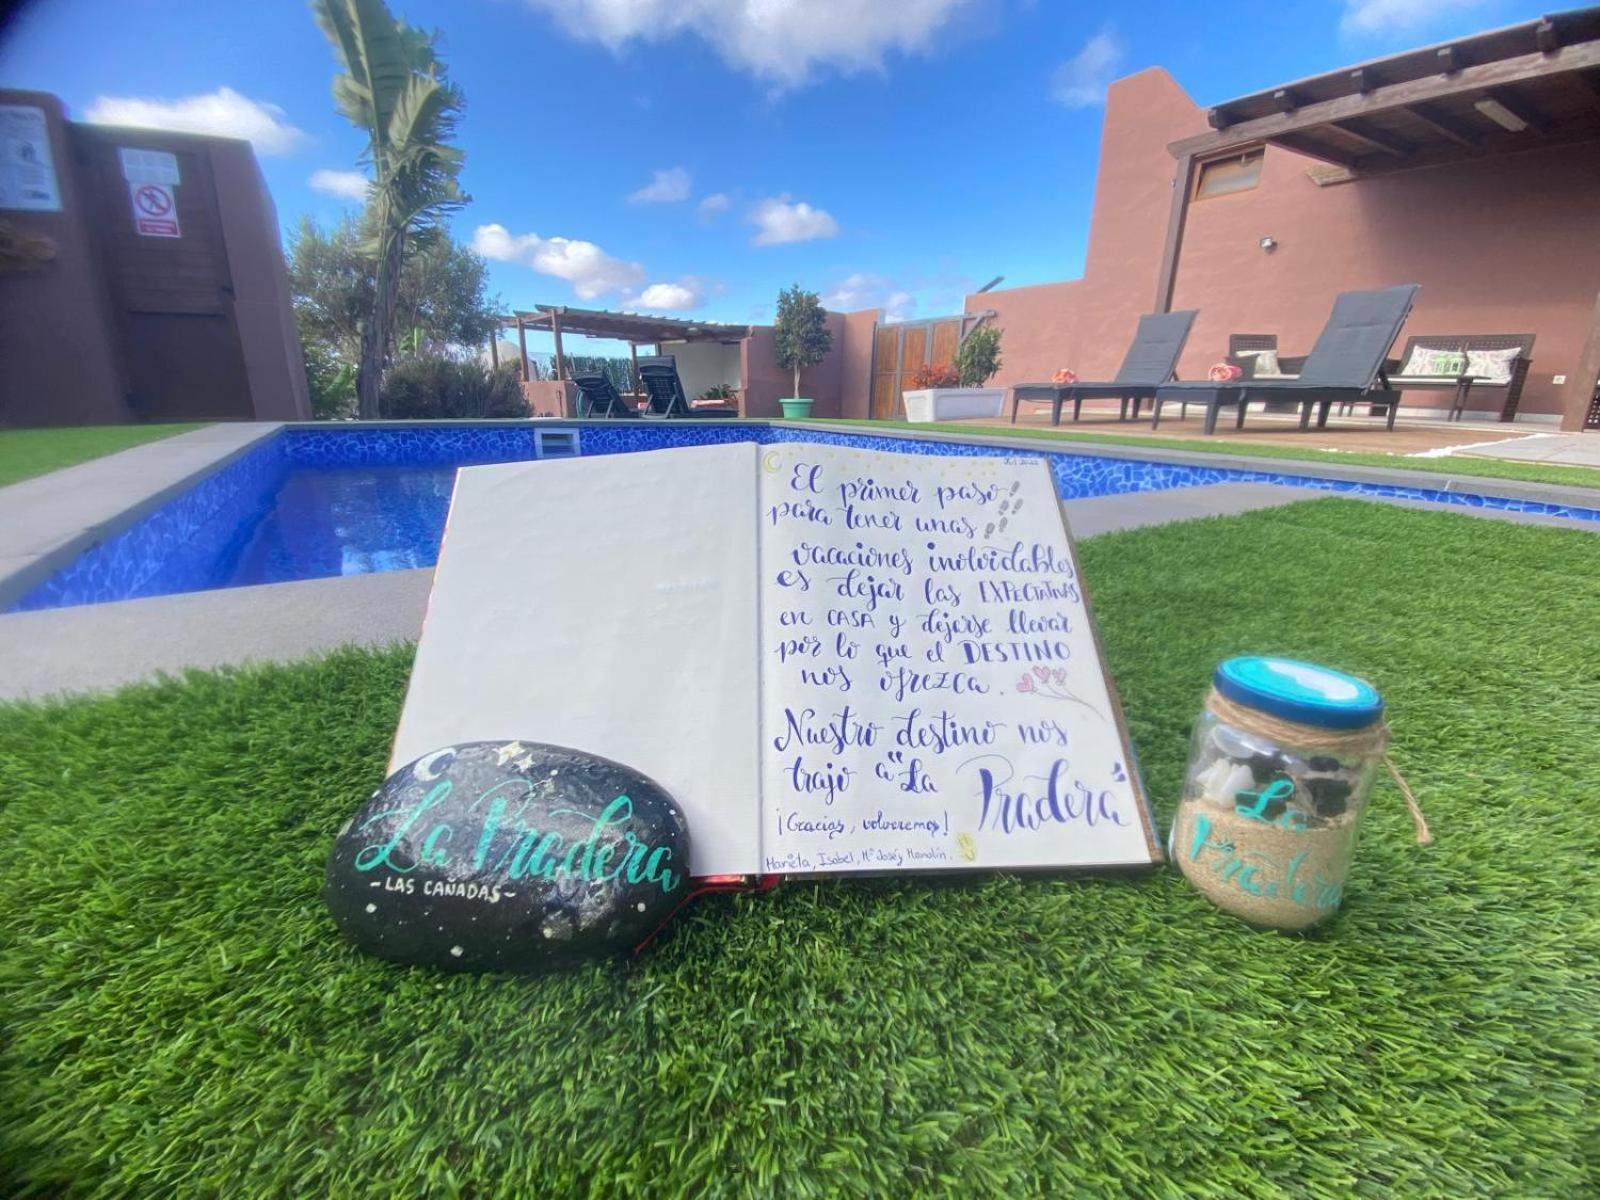 El primer paso
para tener unas
vacaciones inolvidables
es dejar las EXPECTATIVAS
en CASA y dejarse llevar
por lo que el DESTINO
nos ofrezca.
Nuestro destino nos
trajo a "La Pradera"
¡Gracias, volveremos!
Mariela, Isabel, Mª José y Manolín.
La Pradera
-LAS CAÑADAS-
La
Pradera